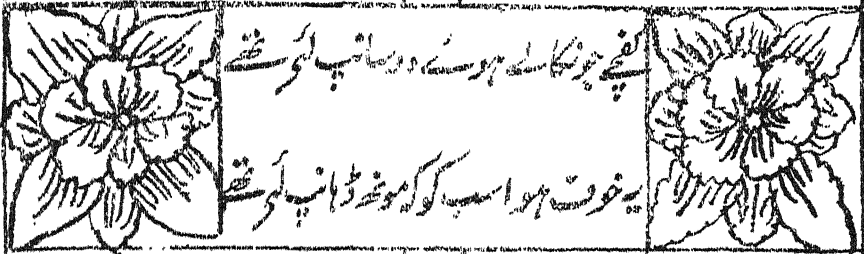 کفچے جو نکالے ہوئے دو سانپ لئے تھے
یہ خوف ہوا سب کو کہ مونھ ڈھانپ لئے تھے